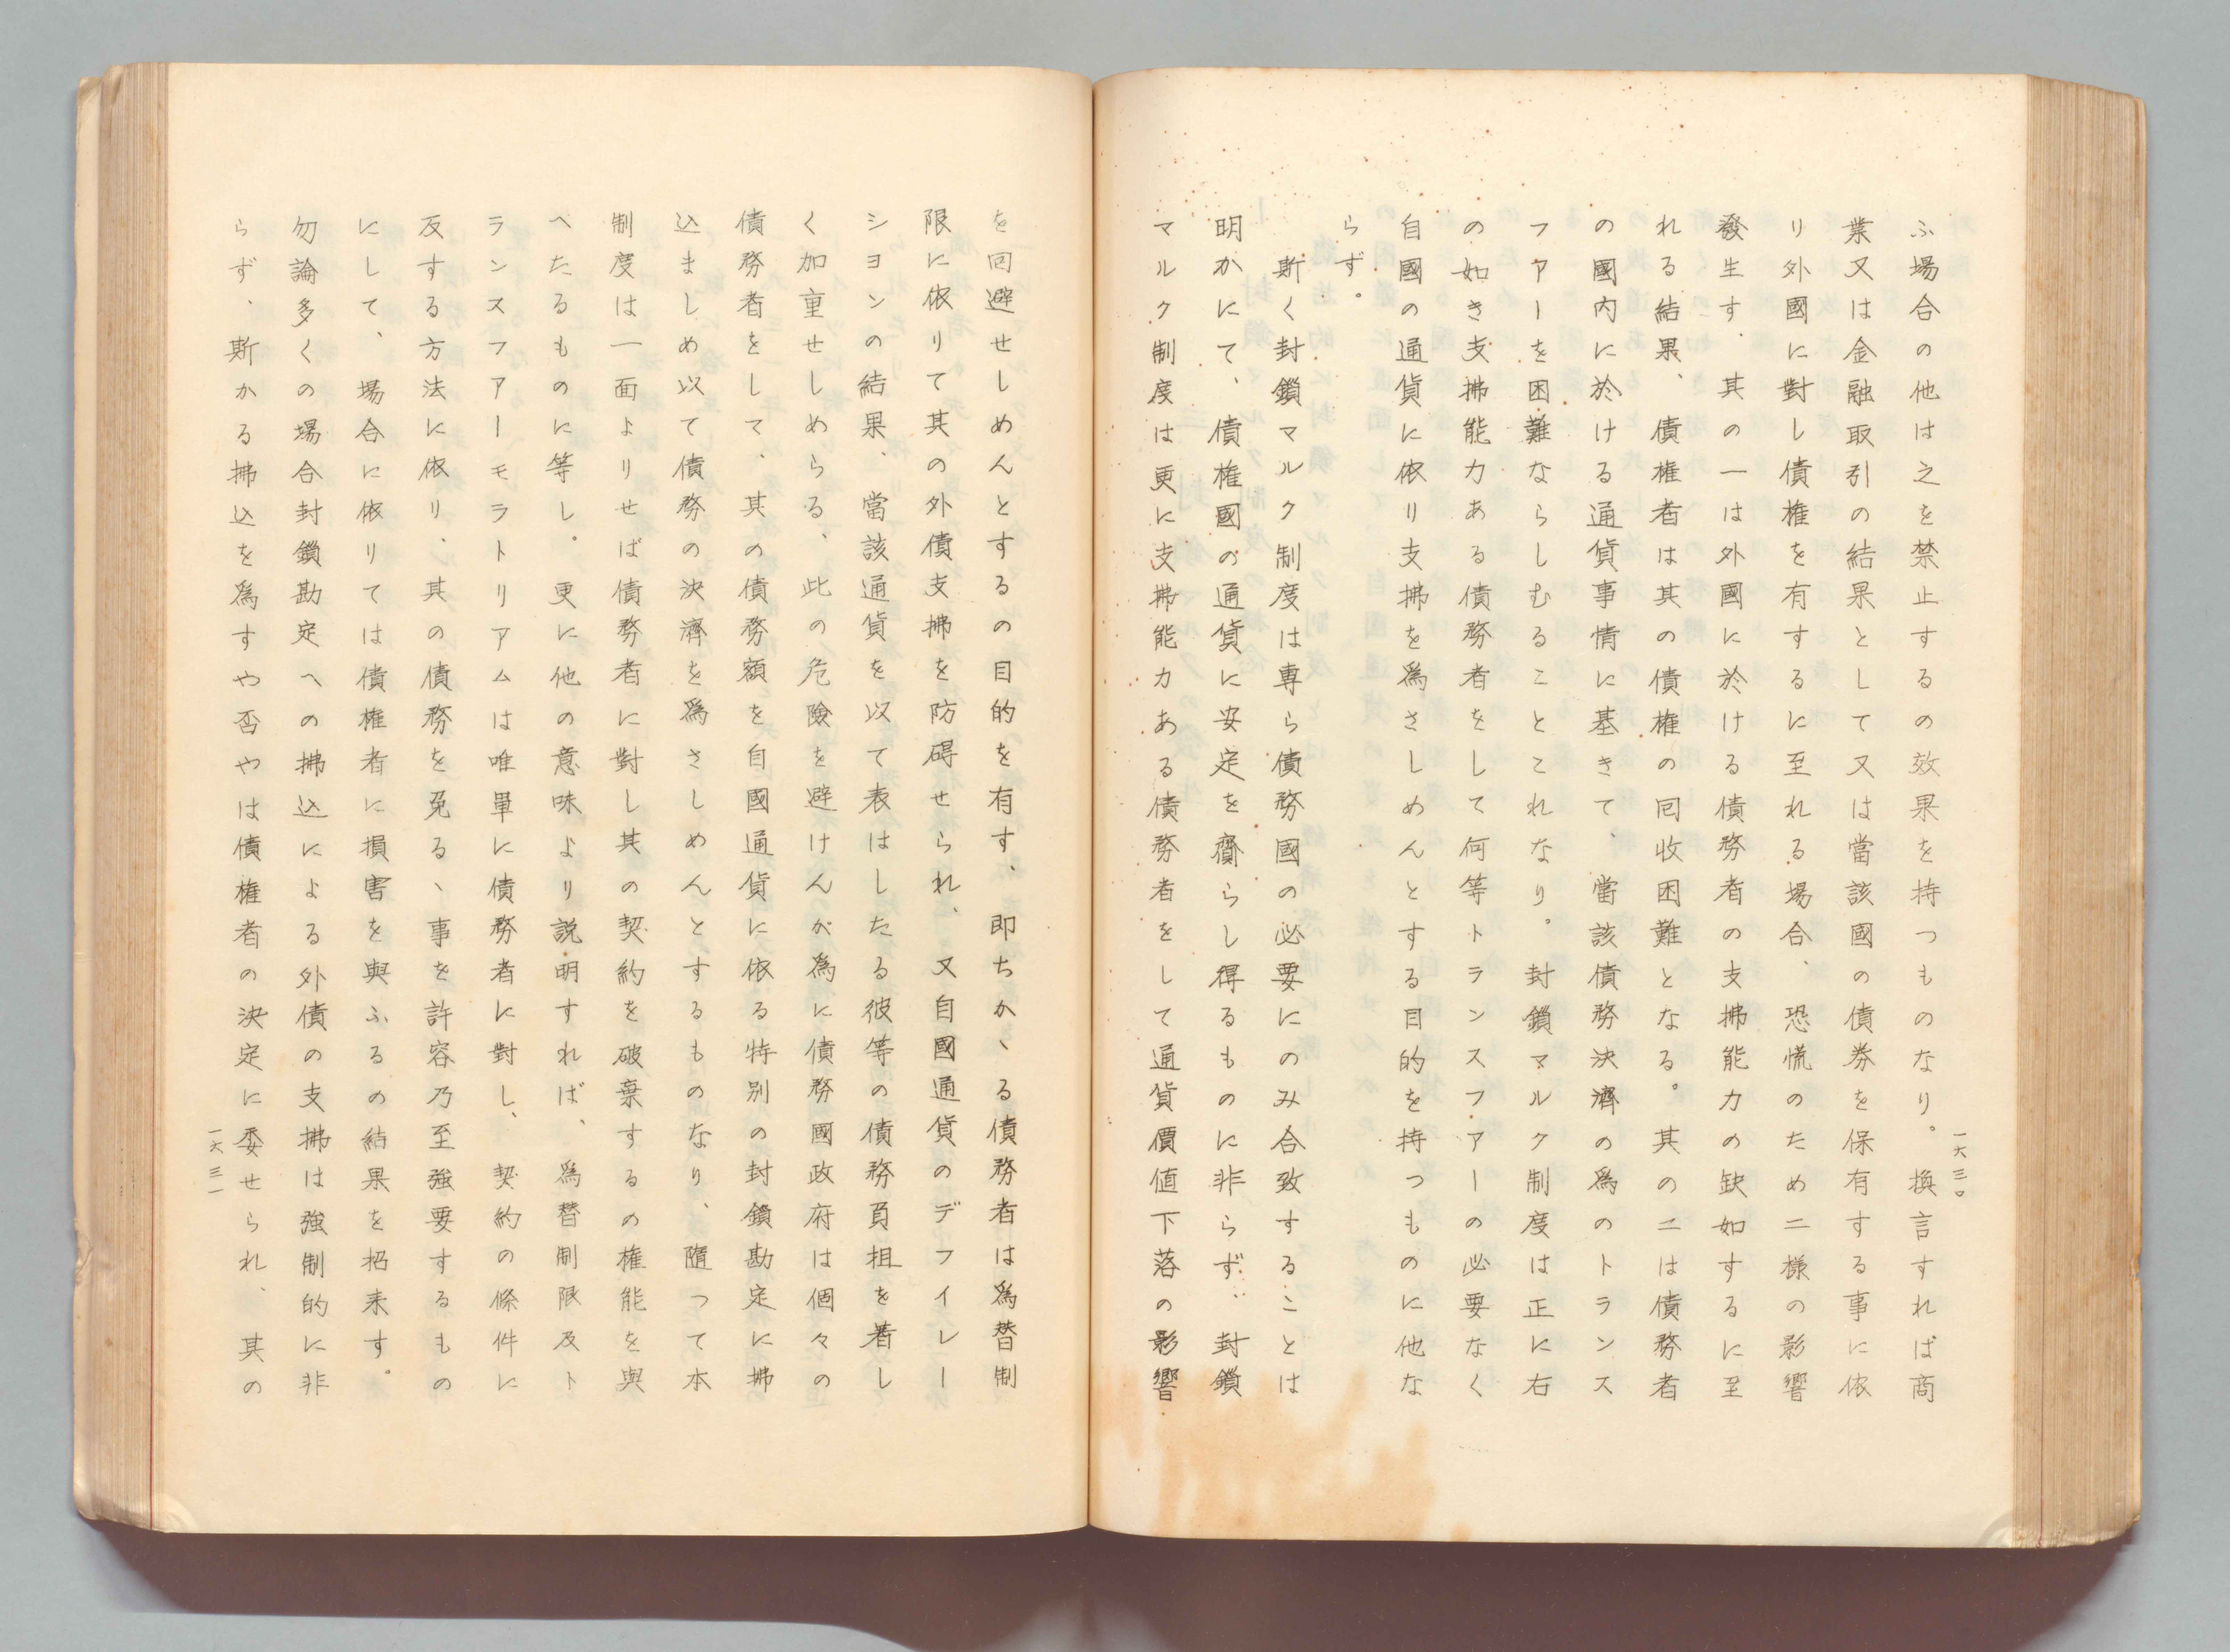 ふ場合の他は之を禁止するの效果を持つものなり。換言すれば商
業又は金融取引の結果として又は當該國の債券を保有する事に依
り外國に對し債権を有するに至れる場合、恐慌のため二様の影響
發生す、其の一は外國に於ける債務者の支拂能力の缺如するに至
れる結果、債権者は其の債権の囘收困難となる。其の二は債務者
の國内に於ける通貨事情に基きて、當該債務決濟の爲のトランス
フアーを困難ならしむることこれなり。封鎖マルク制度は正に右
の如き支拂能力ある債務者をして何等トランスフアーの必要なく
自國の通貨に依り支拂を爲さしめんとする目的を持つものに他な
らず。
斯く封鎖マルク制度は専ら債務國の必要にのみ合致することは
明かにて、債権國の通貨に安定を齎らし得るものに非らず、封鎖
マルク制度は更に支拂能力ある債務者をして通貨價値下落の影響
一六三〇
を回避せしめんとするの目的を有す、即ちかゝる債務者は爲替制
限に依りて其の外債支拂を防碍せられ、又自國通貨のデフイレー
シヨンの結果、當該通貨を以て表はしたる彼等の債務負担を著し
く加重せしめらる、此の危險を避けんが爲に債務國政府は個々の
債務者をして、其の債務額を自國通貨に依る特別の封鎖勘定に拂
込ましめ以て債務の決濟を爲さしめんとするものなり、隨つて本
制度は一面よりせば債務者に對し其の契約を破棄するの権能を與
へたるものに等し。更に他の意味より説明すれば、爲替制限及ト
ランスフアーモラトリアムは唯單に債務者に對し、契約の條件に
反する方法に依り、其の債務を免るゝ事を許容乃至強要するもの
にして、場合に依りては債権者に損害を與ふるの結果を招来す。
勿論多くの場合封鎖勘定への拂込による外債の支拂は強制的に非
らず、斯かる拂込を爲すや否やは債権者の決定に委せられ、其の
一六三一